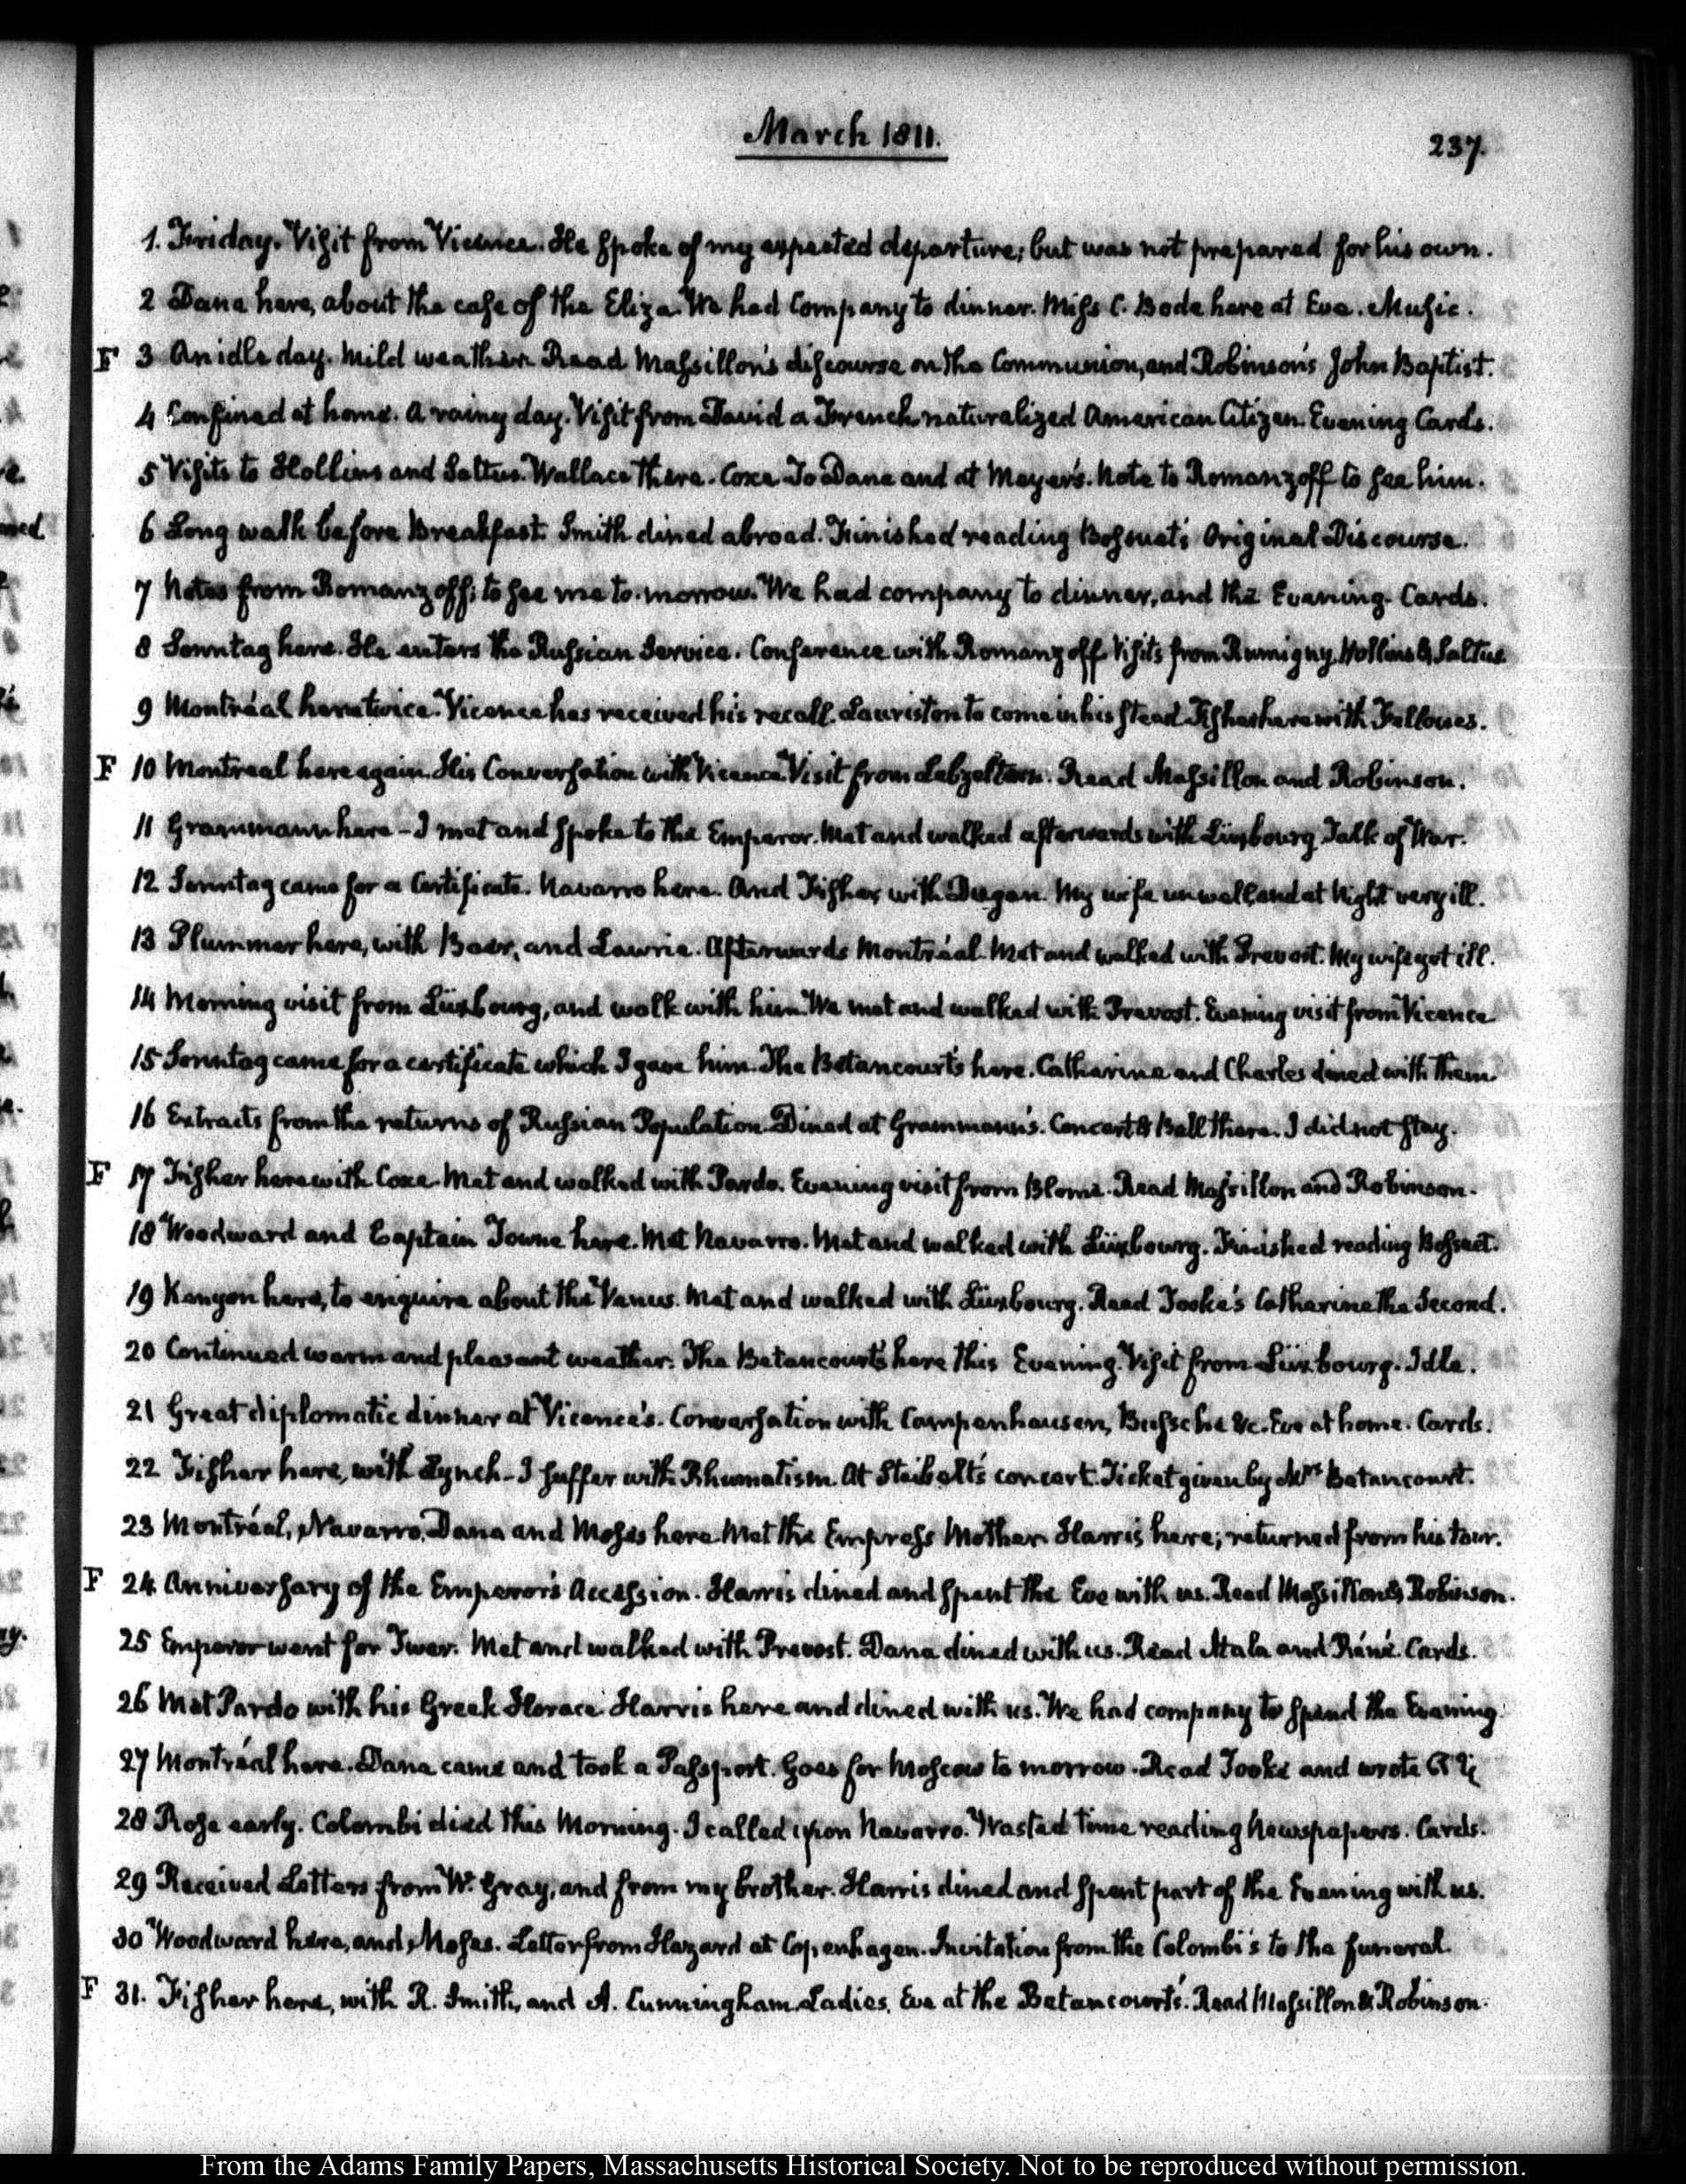 March 1811.
237.
1. Friday. Visit from Vicence. He spoke of my expected departure; but was not prepared for his own.
2 Dana here, about the case of the Eliza. We had Company to dinner. Miss C. Bode here at Eve. Music.
F 3 An idle day. Mild weather. Read Massillon's discourse on the Communion, and Robinson's John Baptist.
4 Confined at home. A rainy day. Visit from David a French naturalized American Citizen. Evening Cards.
5 Visits to Hollins and Saltus. Wallace there. Coxe. To Dana and at Meyer's. Note to Romanzoff to see him.
6 Long walk before Breakfast. Smith dined abroad. Finished reading Bossuet's Original Discourse.
7 Notes from Romanzoff; to see me to-morrow. We had company to dinner, and the Evening. Cards.
8 Sonntag here. He enters the Russian Service. Conference with Romanzoff. Visits from Rumigny, Hollins & Saltus
9 Montréal here twice. Vicence has received his recall. Lauriston to come in his stead. Fisher here with Fellowes.
F 10 Montreal here again. His Conversation with Vicence. Visit from Lebzeltern. Read Massillon and Robinson.
11 Grammann here - I met and spoke to the Emperor. Met and walked afterwards with Lüxbourg. Talk of War.
12 Sonntag came for a Certificate. Navarro here. And Fisher with Dugan. My wife unwell, and at Night very ill.
13 Plummer here, with Baer, and Lawrie. Afterwards Montréal. Met and walked with Prevost. My wife yet ill.
14 Morning visit from Lüxbourg, and walk with him. We met and walked with Prevost. Evening visit from Vicence
15 Sonntag came for a certificate which I gave him. The Betancourt's here. Catharine and Charles dined with them.
16 Extracts from the returns of Russian Population. Dined at Grammann's. Concert & Ball there. I did not stay.
F 17 Fisher here with Coxe. Met and walked with Pardo. Evening visit from Blome. Read Massillon and Robinson.
18 Woodward and Captain Towne here. Met Navarro. Met and walked with Lüxbourg. Finished reading Bossuet.
19 Kenyon here, to enquire about the Venus. Met and walked with Lüxbourg. Read Tooke's Catharine the Second.
20 Continued warm and pleasant weather. The Betancourts here this Evening. Visit from Lüxbourg. Idle.
21 Great diplomatic dinner at Vicence's. Conversation with Campenhausen, Bussche &c. Eve at home. Cards.
22 Fisher here, with Lynch - I suffer with Rhumatism. At Steibelt's concert. Ticket given by Mrs Betancourt.
23 Montréal, Navarro, Dana and Moses here. Met the Empress Mother. Harris here; returned from his tour.
F 24 Anniversary of the Emperor's Accession. Harris dined and spent the Eve with us. Read Massillon & Robinson.
25 Emperor went for Twer. Met and walked with Prevost. Dana dined with us. Read Atala and Réné. Cards.
26 Met Pardo with his Greek Horace. Harris here and dined with us. We had company to spend the Evening.
27 Montréal here. Dana came and took a Passport. Goes for Moscow to morrow. Read Tooke and wrote
28 Rose early. Colombi died this Morning. I called upon Navarro. Wasted time reading Newspapers. Cards.
29 Received Letters from W. Gray, and from my brother. Harris dined and spent part of the Evening with us.
30 Woodward here, and Moses. Letter from Hazard at Copenhagen. Invitation from the Colombi's to the funeral.
F 31. Fisher here, with R. Smith, and A. Cunningham. Ladies, Eve at the Betancourts'. Read Massillon & Robinson.
From the Adams Family Papers, Massachusetts Historical Society. Not to be reproduced without permission.